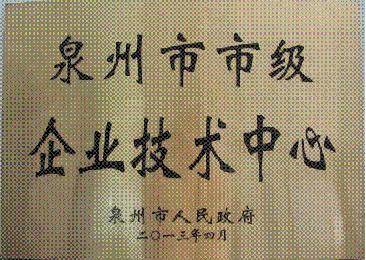 泉州市市级
企业技术中心
泉州市人民政府
二〇一三年四月